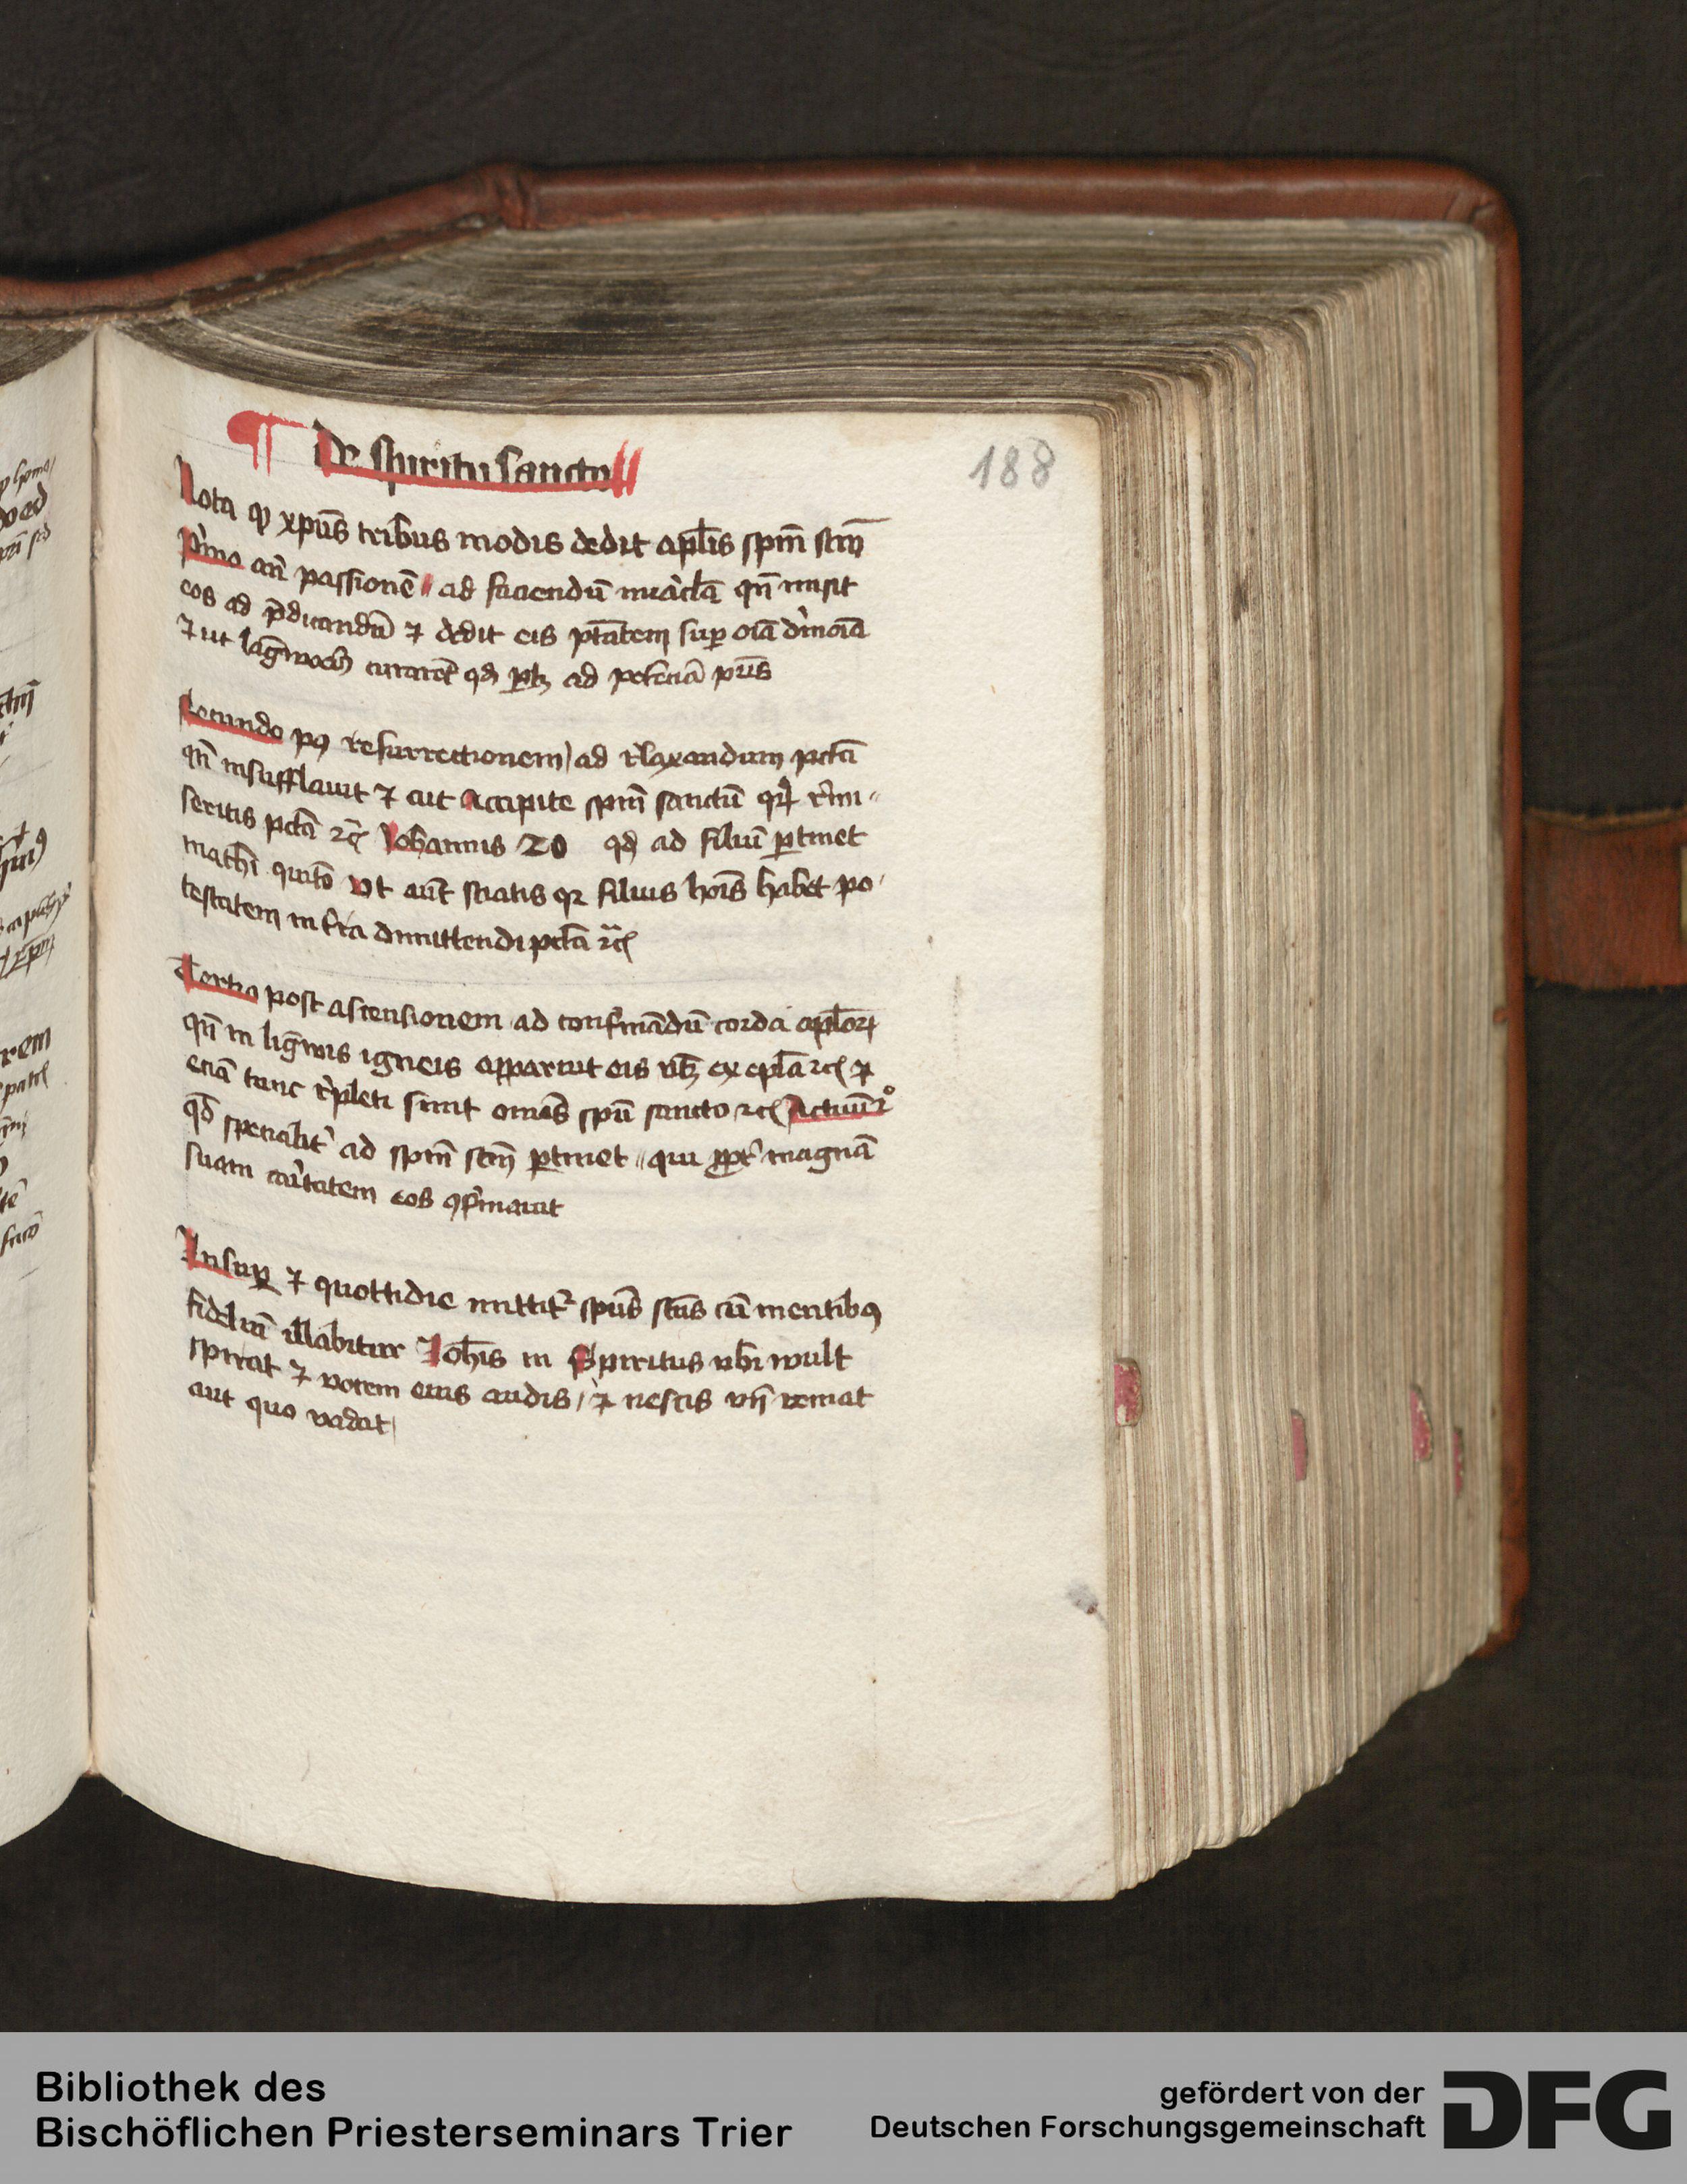 ¶ De spiritu sancto
Nota ꝙ xpūs tribus modis dedit aplīs spm̄ scm̄
Primo an̄ passionē ad faciendū miracl̄a qn̄ misit
eos ad p̄dicandū ⁊ dedit eis ptātem suꝑ oīa demoīa
⁊ ut lāgwores curarēt qđ ꝑtꝫ ad potenciā pr̄is
Secundo pꝰ resurrectionem ad relaxandum pctā
qn̄ insufflauit ⁊ ait Accipite spm̄ sanctū qꝝ remi
seritis pctā ⁊c̄ Johannis 20 qđ ad filiū ꝑtinet
mathī ut aūt sciatis qꝛ filius hoīs habet po
testatem in tr̄a dimittendi pctā ⁊c̄
Tertio post ascensionem ad confirmādū corda aplōꝝ
qn̄ in lingwis igneis apparuit eis vbꝫ ex epl̄a ⁊c̄ ⁊
eciā tunc repleti sunt omēs spū sancto ⁊c̄ Actuū 2º
qđ specialit̄ ad spm̄ scm̄ ꝑtinet qui ꝓpt̄ magnā
suam caritatem eos ꝯfirmauit
Insuꝑ ⁊ quottidie mittitᷣ spūs scūs cū mentibꝰ
fideliū illabitur Joh̄is iii Spiritus vbi wult
spirat ⁊ vocem eius audis ⁊ nescis vn̄ veniat
aut quo vadat
188
Bibliothek des
Bischöflichen Priesterseminars Trier
gefördert von der
Deutschen Forschungsgemeinschaft
DFG